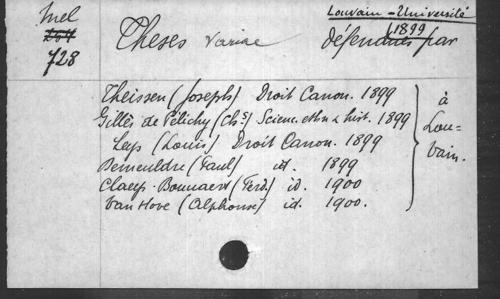 Mel
Louvain-Université
(1899
264
728
Theses variae défendues par
Theissen (Joseph) Droit Canon. 1899
Gillès de Pélichy (Chs) Scienc. ethn & hist. 1899
Leys (Louis) Droit Canon. 1899
Bemeuldre (Paul) id. 1899
Claeys-Bouuaert (Ferd.) id. 1900
Van Hove (Alphonse) id. 1900.
à
Lou-
vain.